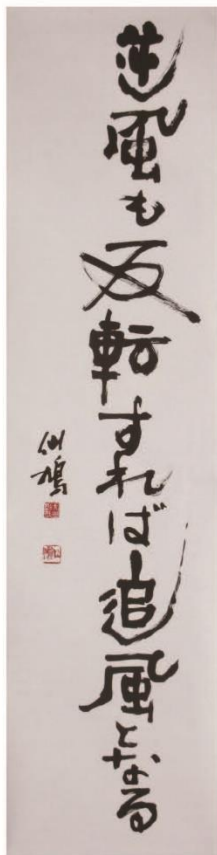 逆風も反転すれば追風となる
仙鳩